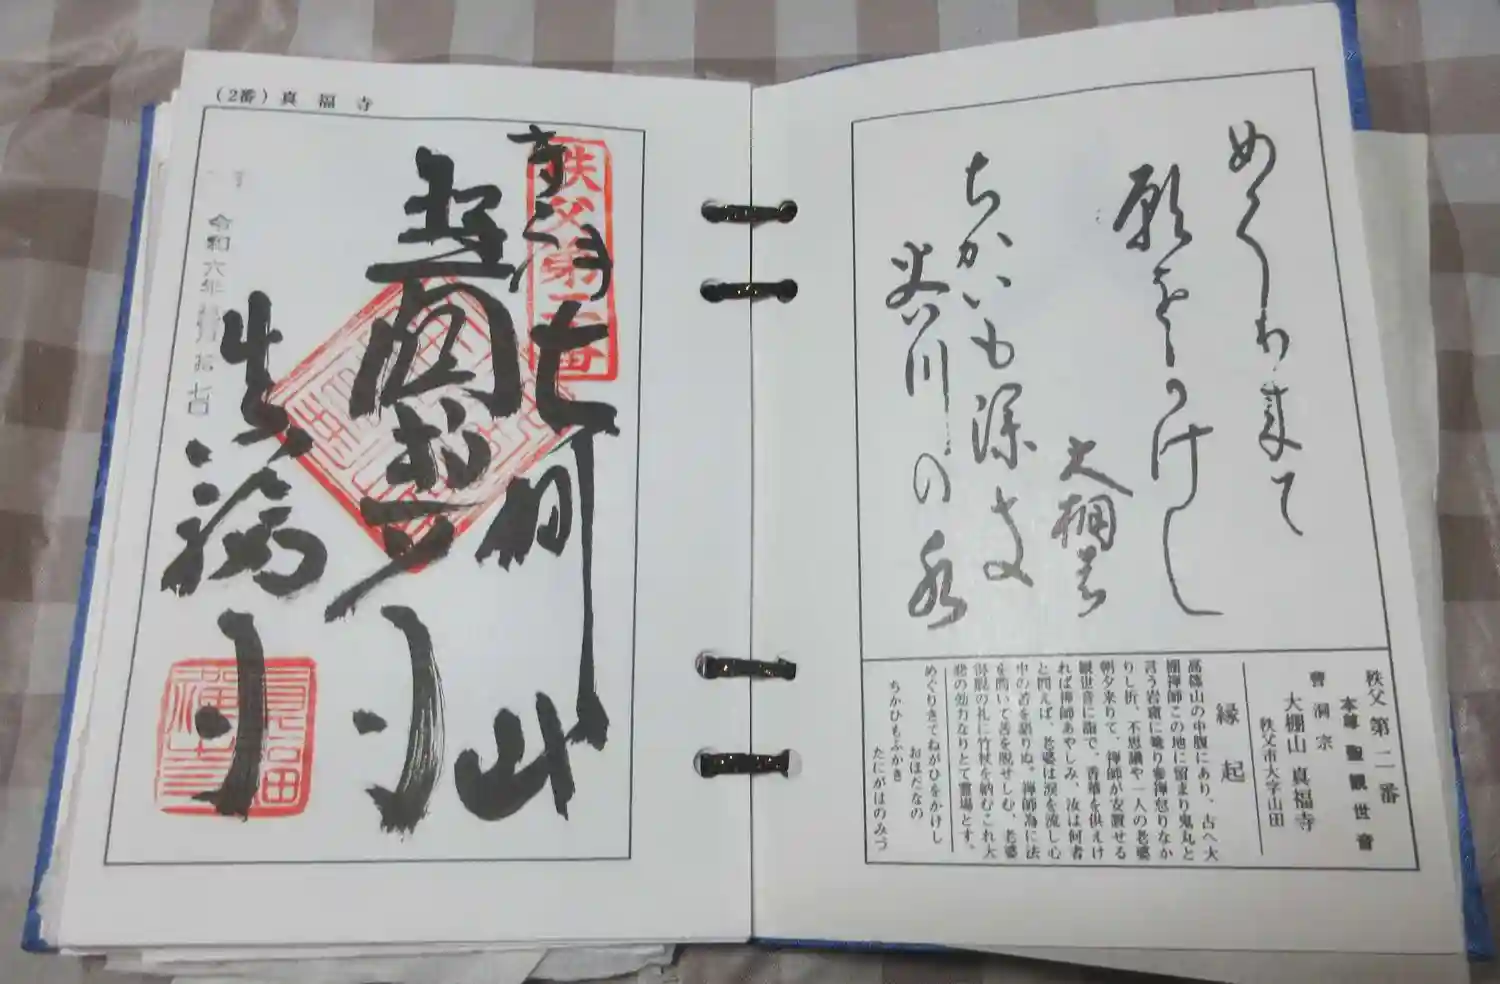 (2番) 真福寺
秩父第二番
大棚山
真福寺
令和六年 七日
めくり来て
願をかけし
大棚の
ちかいも深き
谷川の水
秩父 第二番
本尊 聖観世音
曹洞宗
大棚山 真福寺
秩父市大字山田
縁起
高篠山の中腹にあり、古へ大
棚禅師この地に留まり鬼丸と
言う岩窟に籠り参禅怠りなか
りし折、不思議や一人の老婆
朝夕来りて、禅師が安置せる
観世音に詣で、香華を供えけ
れば禅師あやしみ、汝は何者
と問えば、老婆は涙を流し心
中の苦を語りぬ。禅師為に法
を問いて苦を脱せしむ、老婆
得脱の礼に竹杖を納むこれ大
悲の効力なりとて霊場とす。
めぐりきてねがひをかけし
おほだなの
ちかひもふかき
たにがはのみづ